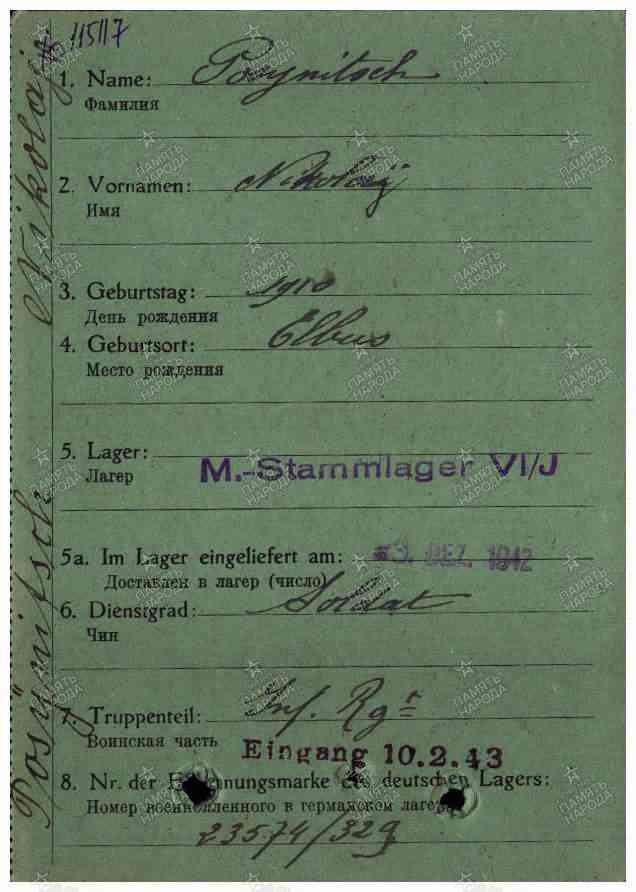 115117
Nikolaj
1. Name: Posynitsch
Фамилия
2. Vornamen: Nikolaj
Имя
3. Geburtstag: 1910
День рождения
4. Geburtsort: Elbus
Место рождения
5. Lager: M.-Stammlager VI/J
Лагер
5a. Im Lager eingeliefert am: 3. DEZ. 1942
Доставлен в лагер (число)
6. Dienstgrad: Soldat
Чин
7. Truppenteil: Inf. Rgr
Воинская часть
Eingang 10.2.43
8. Nr. der Erkennungsmarke des deutschen Lagers:
Номер военнопленного в германском лагере
23574/329
Posünitsch
ПАМЯТЬ НАРОДА